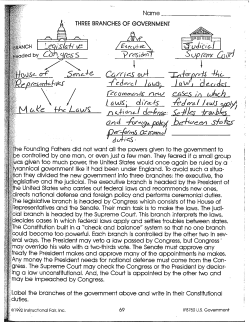 Name
THREE BRANCHES OF GOVERNMENT
BRANCH Legislative Executive Judicial
Headed by Congress President Supreme Court
House of Representatives Senate
Make the Laws
Carries out
federal laws,
recommends new
laws, directs
national defense
and foreign policy
performs ceremonial
duties
Interprets the
law, decides
cases in which
federal laws apply,
settles troubles
between states
The Founding Fathers did not want all the powers given to the government to
be controlled by one man, or even just a few men. They feared if a small group
was given too much power, the United States would once again be ruled by a
tyrannical government like it had been under England. To avoid such a situa-
tion they divided the new government into three branches: the executive, the
legislative and the judicial. The executive branch is headed by the President of
the United States who carries out federal laws and recommends new ones,
directs national defense and foreign policy and performs ceremonial duties.
The legislative branch is headed by Congress which consists of the House of
Representatives and the Senate. Their main task is to make the laws. The judi-
cial branch is headed by the Supreme Court. This branch interprets the laws,
decides cases in which federal laws apply and settles troubles between states.
The Constitution built in a "check and balance" system so that no one branch
would become too powerful. Each branch is controlled by the other two in sev-
eral ways. The President may veto a law passed by Congress, but Congress
may override his veto with a two-thirds vote. The Senate must approve any
treaty the President makes and approve many of the appointments he makes.
Any money the President needs for national defense must come from the Con-
gress. The Supreme Court may check the Congress or the President by declar-
ing a law unconstitutional. And, the Court is appointed by the other two and
may be impeached by Congress.
Label the branches of the government above and write in their Constitutional
duties.
©1992 Instructional Fair, Inc. 69 IF8750 U.S. Government